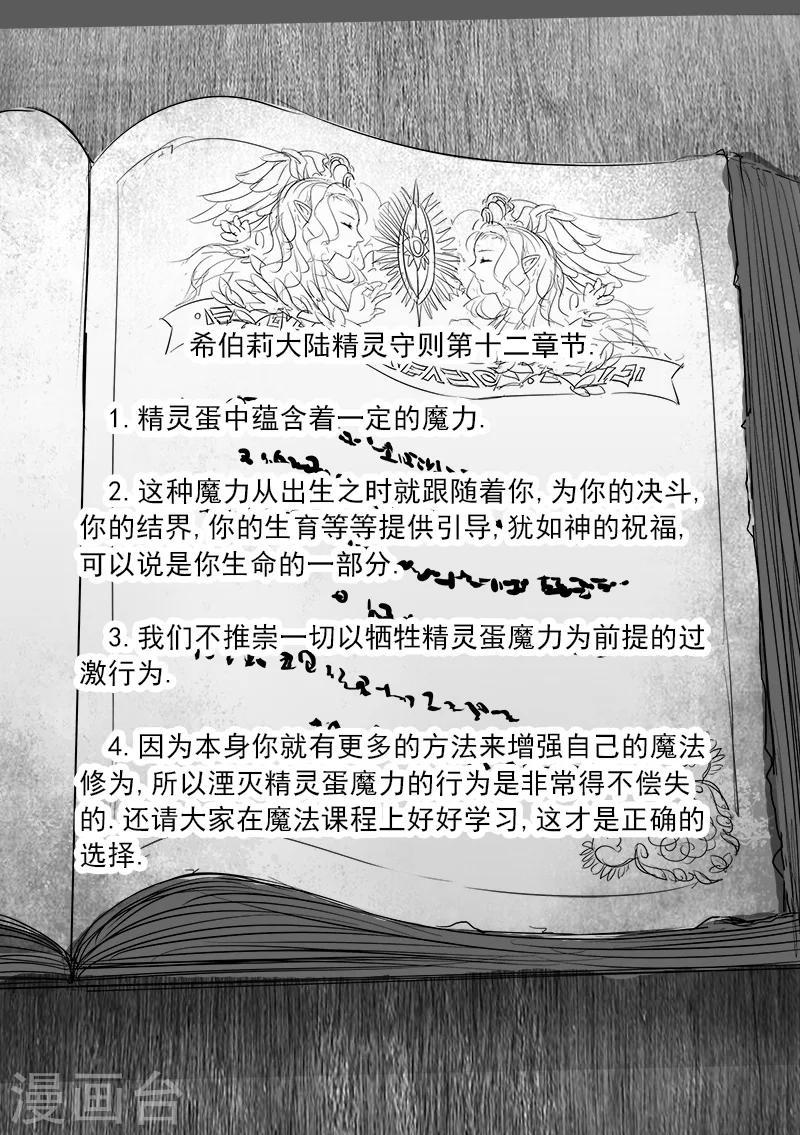 希伯莉大陆精灵守则第十二章节.
1.精灵蛋中蕴含着一定的魔力.
2.这种魔力从出生之时就跟随着你,为你的决斗,
你的结界,你的生育等等提供引导,犹如神的祝福,
可以说是你生命的一部分.
3.我们不推崇一切以牺牲精灵蛋魔力为前提的过
激行为.
4.因为本身你就有更多的方法来增强自己的魔法
修为,所以湮灭精灵蛋魔力的行为是非常得不偿失
的.还请大家在魔法课程上好好学习,这才是正确的
选择.
漫画台